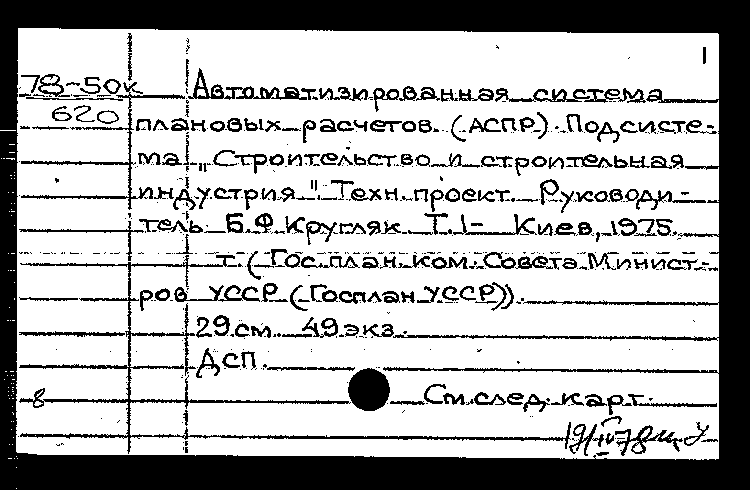 1
78-50к Автоматизированная система
620 плановых расчетов. (АСПР). Подсисте-
ма „Строительство и строительная
индустрия". Техн. проект. Руководи-
тель Б.Ф. Кругляк Т.1- Киев, 1975.
т. (Гос. план. ком. Совета Минист-
ров УССР (Госплан УССР)).
29см. 49 экз.
ДСП.
8 См. след. карт.
19/IV-78